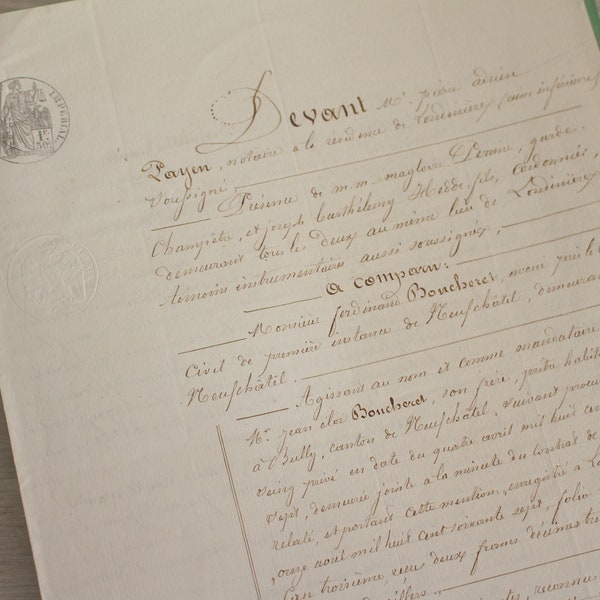 IMPÉRIAL
1 F.
50 C.
Devant Me pierre adrien
Payen, notaire à la résidence de Londinières (seine inférieure)
soussigné
Présence de m.m. magloire, garde
Champêtre, et joseph barthélemy fils, Cordonnier,
demeurant tous les deux au même lieu de Londinières
témoins instrumentaires aussi soussignés,
A comparu:
Monsieur ferdinand Boucheret, avoué près le
Civil de première instance de Neufchâtel, demeurant
Neufchâtel
Agissant au nom et comme mandataire
Mr jean éloi Boucheret, son frère, prêtre habit
à Bully, canton de Neufchâtel, suivant procu
seing privé en date du quatre avril mil huit cent
sept, demeurée jointe à la minute du contrat de
relaté, et portant cette mention, enregistré à
onze août mil huit cent soixante sept, folio
Case troisième, reçu deux francs décimes
reconnue